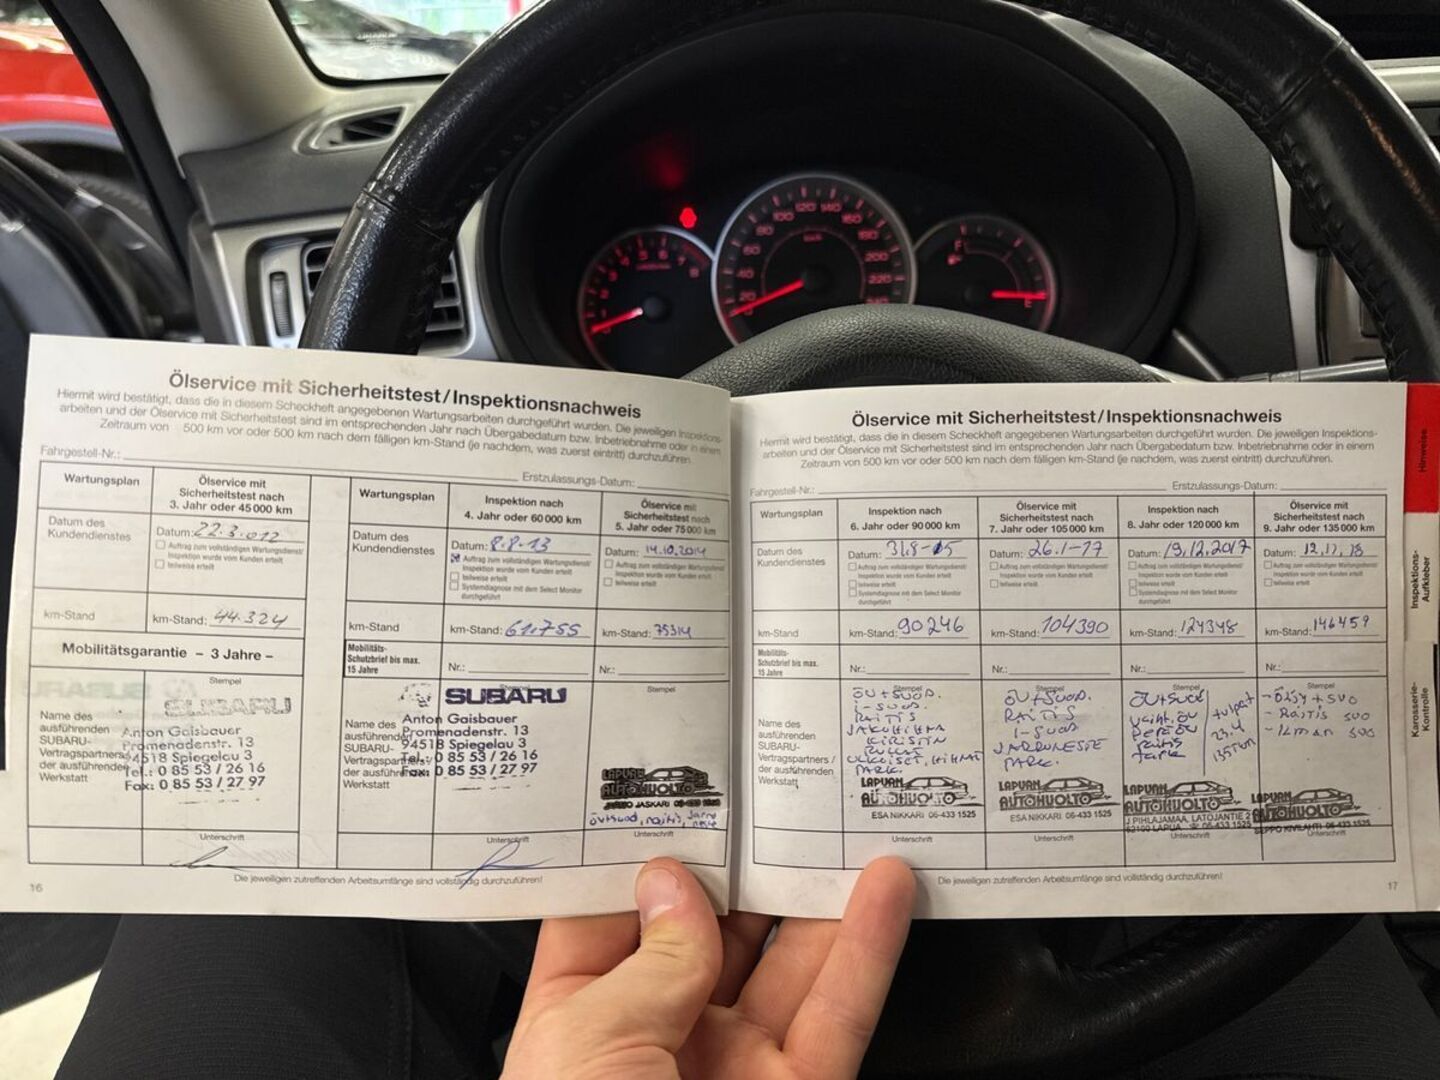 Ölservice mit Sicherheitstest/Inspektionsnachweis
Hiermit wird bestätigt, dass die in diesem Scheckheft angegebenen Wartungsarbeiten durchgeführt wurden. Die jeweiligen Inspektions-
arbeiten und der Ölservice mit Sicherheitstest sind im entsprechenden Jahr nach Übergabedatum bzw. Inbetriebnahme oder in einem
Zeitraum von 500 km vor oder 500 km nach dem fälligen km-Stand (je nachdem, was zuerst eintritt) durchzuführen.
Fahrgestell-Nr.: Erstzulassungs-Datum:
Wartungsplan
Ölservice mit
Sicherheitstest nach
3. Jahr oder 45 000 km
Datum des
Kundendienstes
Datum: 22.3.012
Auftrag zum vollständigen Wartungsdienst/
Inspektion wurde vom Kunden erteilt
teilweise erteilt
km-Stand
km-Stand: 44.324
Mobilitätsgarantie – 3 Jahre –
Stempel
SUBARU
Name des
ausführenden
SUBARU-
Vertragspartners
der ausführenden
Werkstatt
Anton Gaisbauer
Promenadenstr. 13
94518 Spiegelau 3
Tel.: 0 85 53 / 26 16
Fax: 0 85 53 / 27 97
Unterschrift
Wartungsplan
Inspektion nach
4. Jahr oder 60 000 km
Ölservice mit
Sicherheitstest nach
5. Jahr oder 75 000 km
Datum des
Kundendienstes
Datum: 8.8.13
Auftrag zum vollständigen Wartungsdienst/
Inspektion wurde vom Kunden erteilt
teilweise erteilt
Systemdiagnose mit dem Select Monitor
durchgeführt
Datum: 14.10.2014
Auftrag zum vollständigen Wartungsdienst/
Inspektion wurde vom Kunden erteilt
teilweise erteilt
km-Stand
km-Stand: 61.755
km-Stand: 75314
Mobilitäts-
Schutzbrief bis max.
15 Jahre
Nr.:
Nr.:
SUBARU
Stempel
Name des
ausführenden
SUBARU-
Vertragspartners/
der ausführenden
Werkstatt
Anton Gaisbauer
Promenadenstr. 13
94518 Spiegelau 3
Tel.: 0 85 53 / 26 16
Fax: 0 85 53 / 27 97
LAPUAN
AUTOHUOLTO
JARMO JASKARI 06-433 1525
Unterschrift
Unterschrift
Die jeweiligen zutreffenden Arbeitsumfänge sind vollständig durchzuführen!
16
Ölservice mit Sicherheitstest/Inspektionsnachweis
Hiermit wird bestätigt, dass die in diesem Scheckheft angegebenen Wartungsarbeiten durchgeführt wurden. Die jeweiligen Inspektions-
arbeiten und der Ölservice mit Sicherheitstest sind im entsprechenden Jahr nach Übergabedatum bzw. Inbetriebnahme oder in einem
Zeitraum von 500 km vor oder 500 km nach dem fälligen km-Stand (je nachdem, was zuerst eintritt) durchzuführen.
Fahrgestell-Nr.: Erstzulassungs-Datum:
Wartungsplan
Inspektion nach
6. Jahr oder 90 000 km
Ölservice mit
Sicherheitstest nach
7. Jahr oder 105 000 km
Inspektion nach
8. Jahr oder 120 000 km
Ölservice mit
Sicherheitstest nach
9. Jahr oder 135 000 km
Datum des
Kundendienstes
Datum: 31.8-15
Auftrag zum vollständigen Wartungsdienst/
Inspektion wurde vom Kunden erteilt
teilweise erteilt
Systemdiagnose mit dem Select Monitor
durchgeführt
Datum: 26.1-17
Auftrag zum vollständigen Wartungsdienst/
Inspektion wurde vom Kunden erteilt
teilweise erteilt
Datum: 19.12.2017
Auftrag zum vollständigen Wartungsdienst/
Inspektion wurde vom Kunden erteilt
teilweise erteilt
Systemdiagnose mit dem Select Monitor
durchgeführt
Datum: 12.11.18
Auftrag zum vollständigen Wartungsdienst/
Inspektion wurde vom Kunden erteilt
teilweise erteilt
km-Stand
km-Stand: 90246
km-Stand: 104390
km-Stand: 124348
km-Stand: 146459
Mobilitäts-
Schutzbrief bis max.
15 Jahre
Nr.:
Nr.:
Nr.:
Nr.:
Name des
ausführenden
SUBARU-
Vertragspartners /
der ausführenden
Werkstatt
Stempel
ÖU+SUOD.
I-SUOD
RAITIS
JAKOHIHNA
KIRISTIN
RULLAT
ULKOISET, HIHNAT
PARK.
LAPUAN
AUTOHUOLTO
ESA NIKKARI 06-433 1525
Stempel
ÖU+SUOD.
RAITIS
I-SUOD
JARRUNESTE
PARK.
LAPUAN
AUTOHUOLTO
ESA NIKKARI 06-433 1525
Stempel
ÖU+SUOD
tulpat
LAPUAN
AUTOHUOLTO
J.PIHLAJAMAA, LATOJANTIE 2
62100 LAPUA, ☎ 06-433 1525
Stempel
- Öljy + suo
- Raitis suo
- Ilman suo
LAPUAN
AUTOHUOLTO
SEPPO KIVILAHTI 06-433 1525
Unterschrift
Unterschrift
Unterschrift
Unterschrift
Die jeweiligen zutreffenden Arbeitsumfänge sind vollständig durchzuführen!
17
Hinweise
Inspektions-
Aufkleber
Karosserie-
Kontrolle